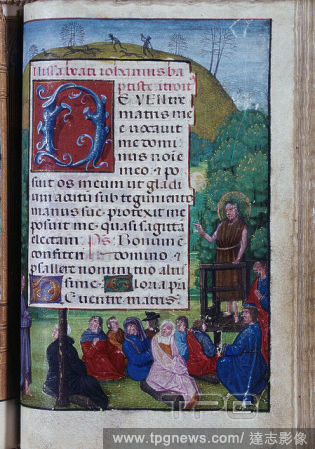 Missa beati iohannis ba
ptiste introit
DE VENTRE
matris me
e uocauit
me domi
nus noie
meo ⁊ po
suit os meum ut gladi
um acutū sub tegumento
manus sue protexit me
posuit me quasi sagitta
electam. Ps Bonum ē
confiteri domino ⁊
psallere nomini tuo alti
sime. Gloria pa
E uentre matris.
TPG
www.tpgnews.com/ 達志影像